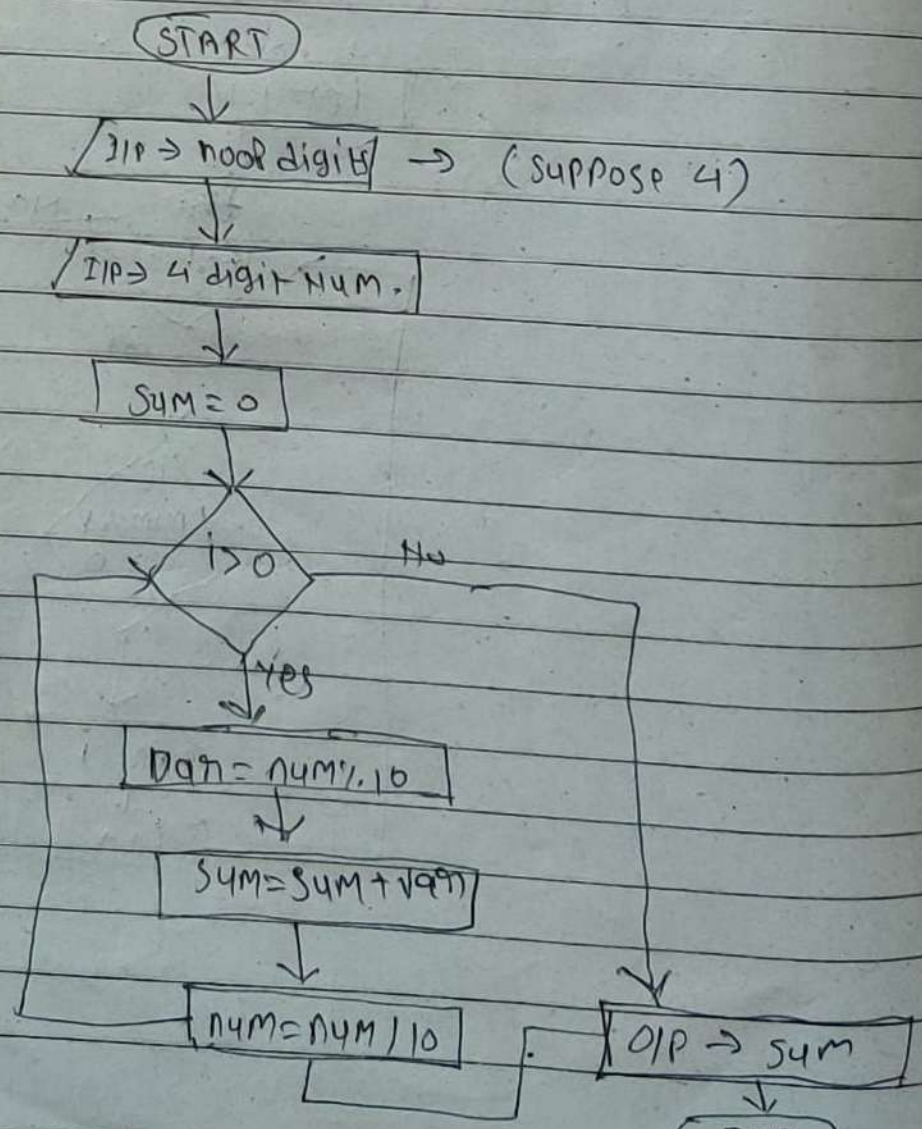 START
I/P → no of digits → (Suppose 4)
I/P → 4 digit Num.
Sum = 0
i>0
No
Yes
= num%10
Sum = Sum +
num = num/10
O/P → Sum